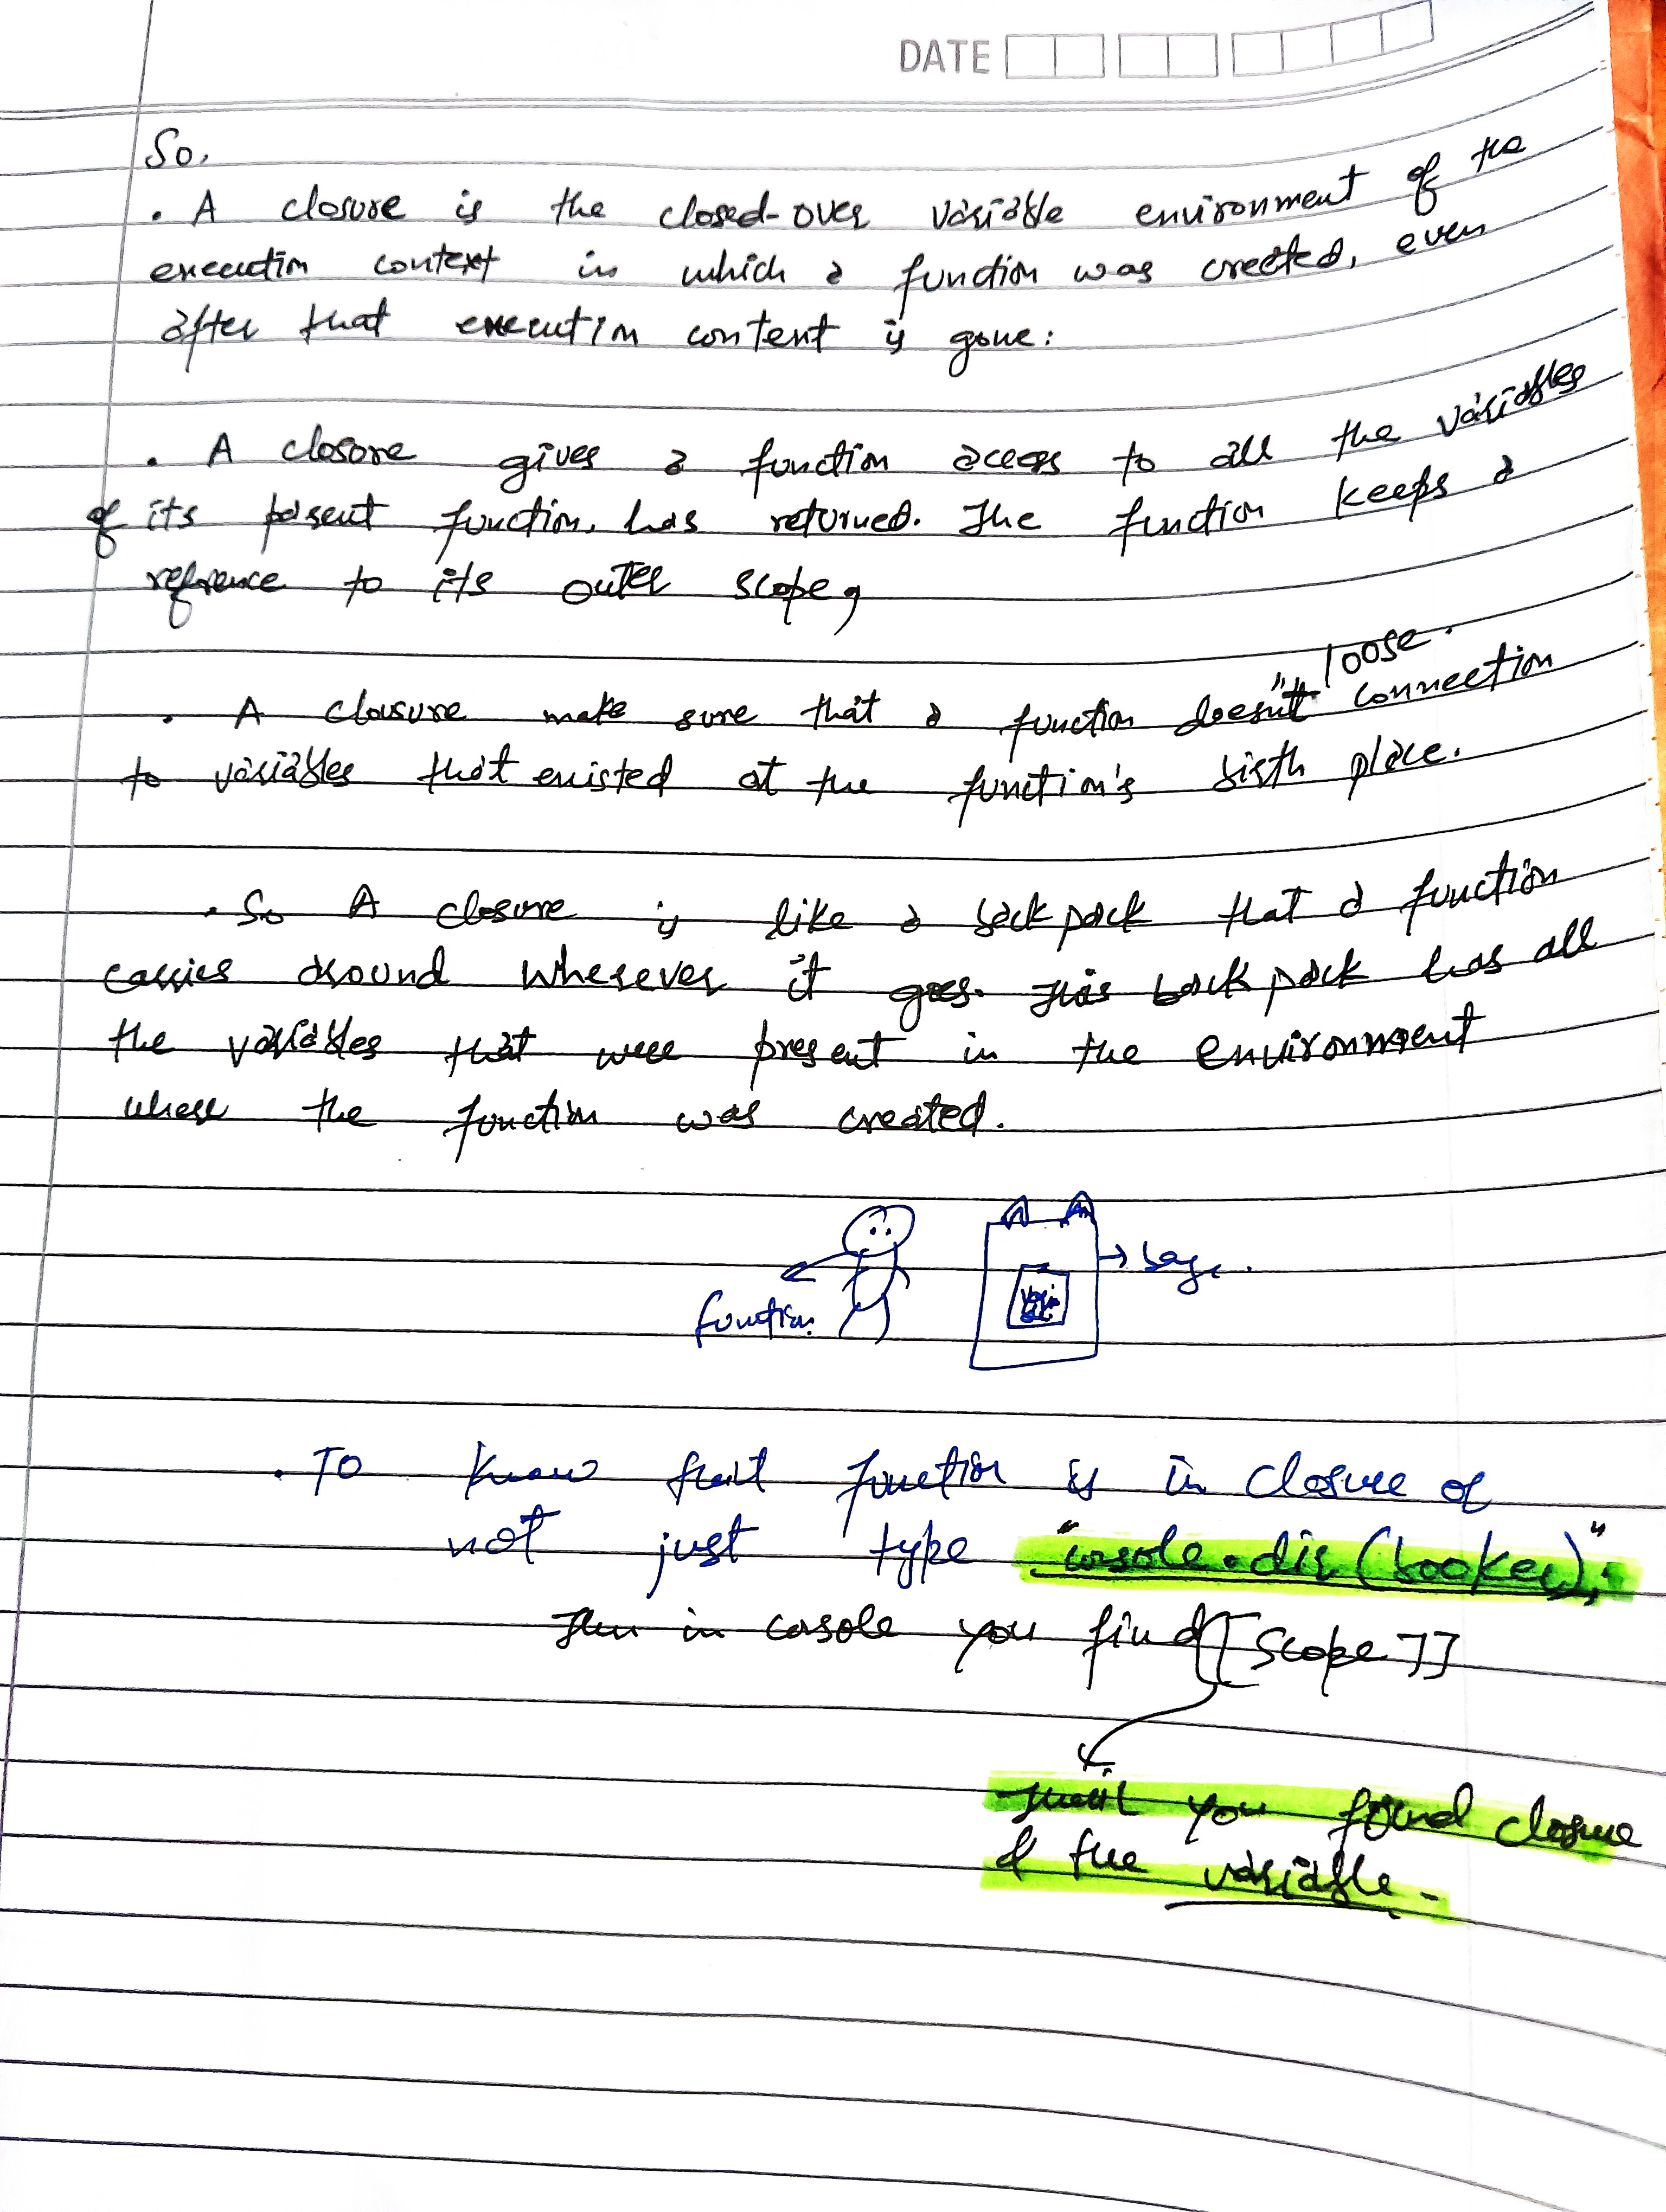 DATE
So,
. A closure is the closed-over variable environment of the
execution context in which a function was created, even
after that execution context is gone:
. A closore gives a function access to all the variables
of its parent function. has returned. The function keeps a
refrence to its outer scope,
loose.
. A closure make sure that a function doesn't connection
to variables that existed at the function's birth place.
. So A closure is like a back pack that a function
carries around wherever it goes. This back pack has all
the variables that were present in the environment
where the function was created.
function
→ bag.
. To know that function is in closure or
not just type "console.dir(booker);"
Then in console you find [[Scope]]
you found closure
of the variable.